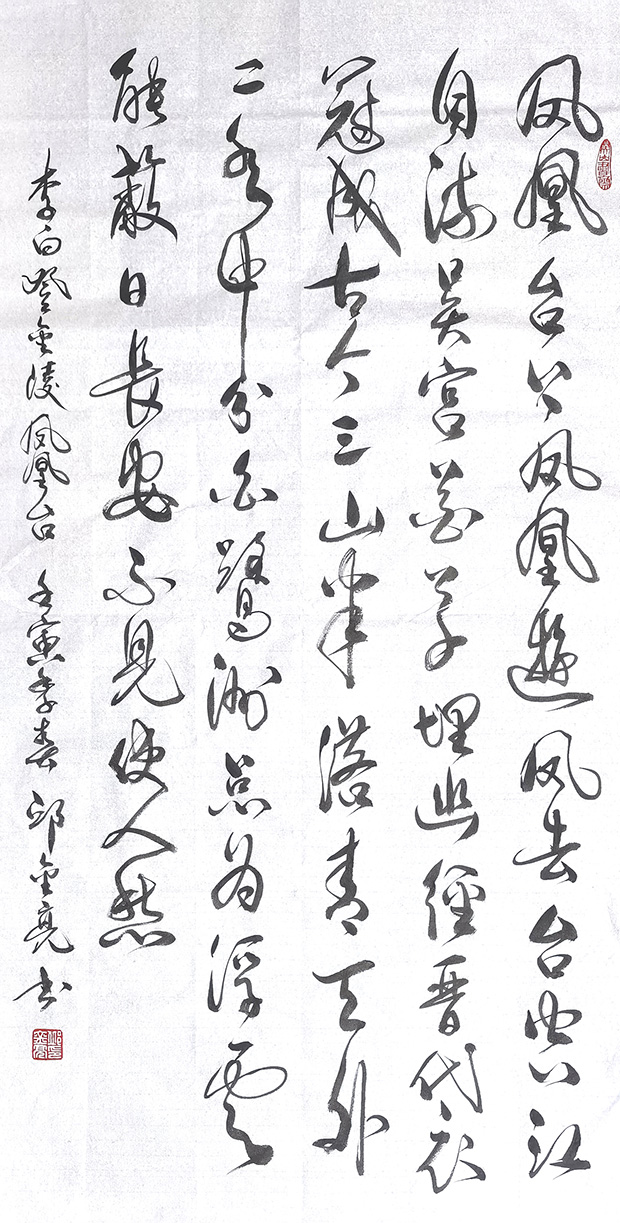 凤凰台上凤凰遊凤去台空江
自流吴宫花草埋幽徑晋代衣
冠成古今三山半落青天外
二水中分白鹭洲总为浮雲
能蔽日長安不見使人愁
李白登金陵凤凰台 壬寅季春 邱金亮书